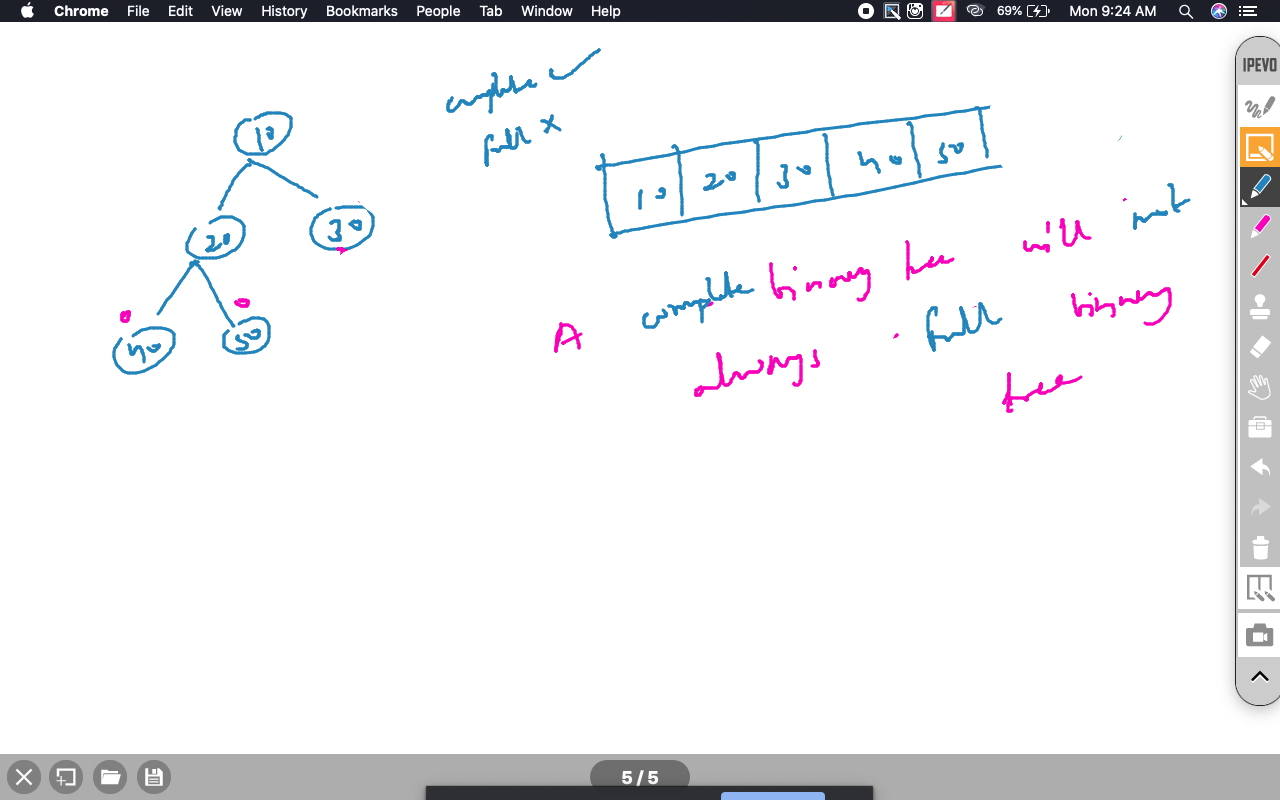 Chrome File Edit View History Bookmarks People Tab Window Help 69% Mon 9:24 AM
IPEVO
complete ✓
full ×
10
20 30
40 50
10 20 30 40 50
A complete binary tree will not
always full binary
tree
5 / 5